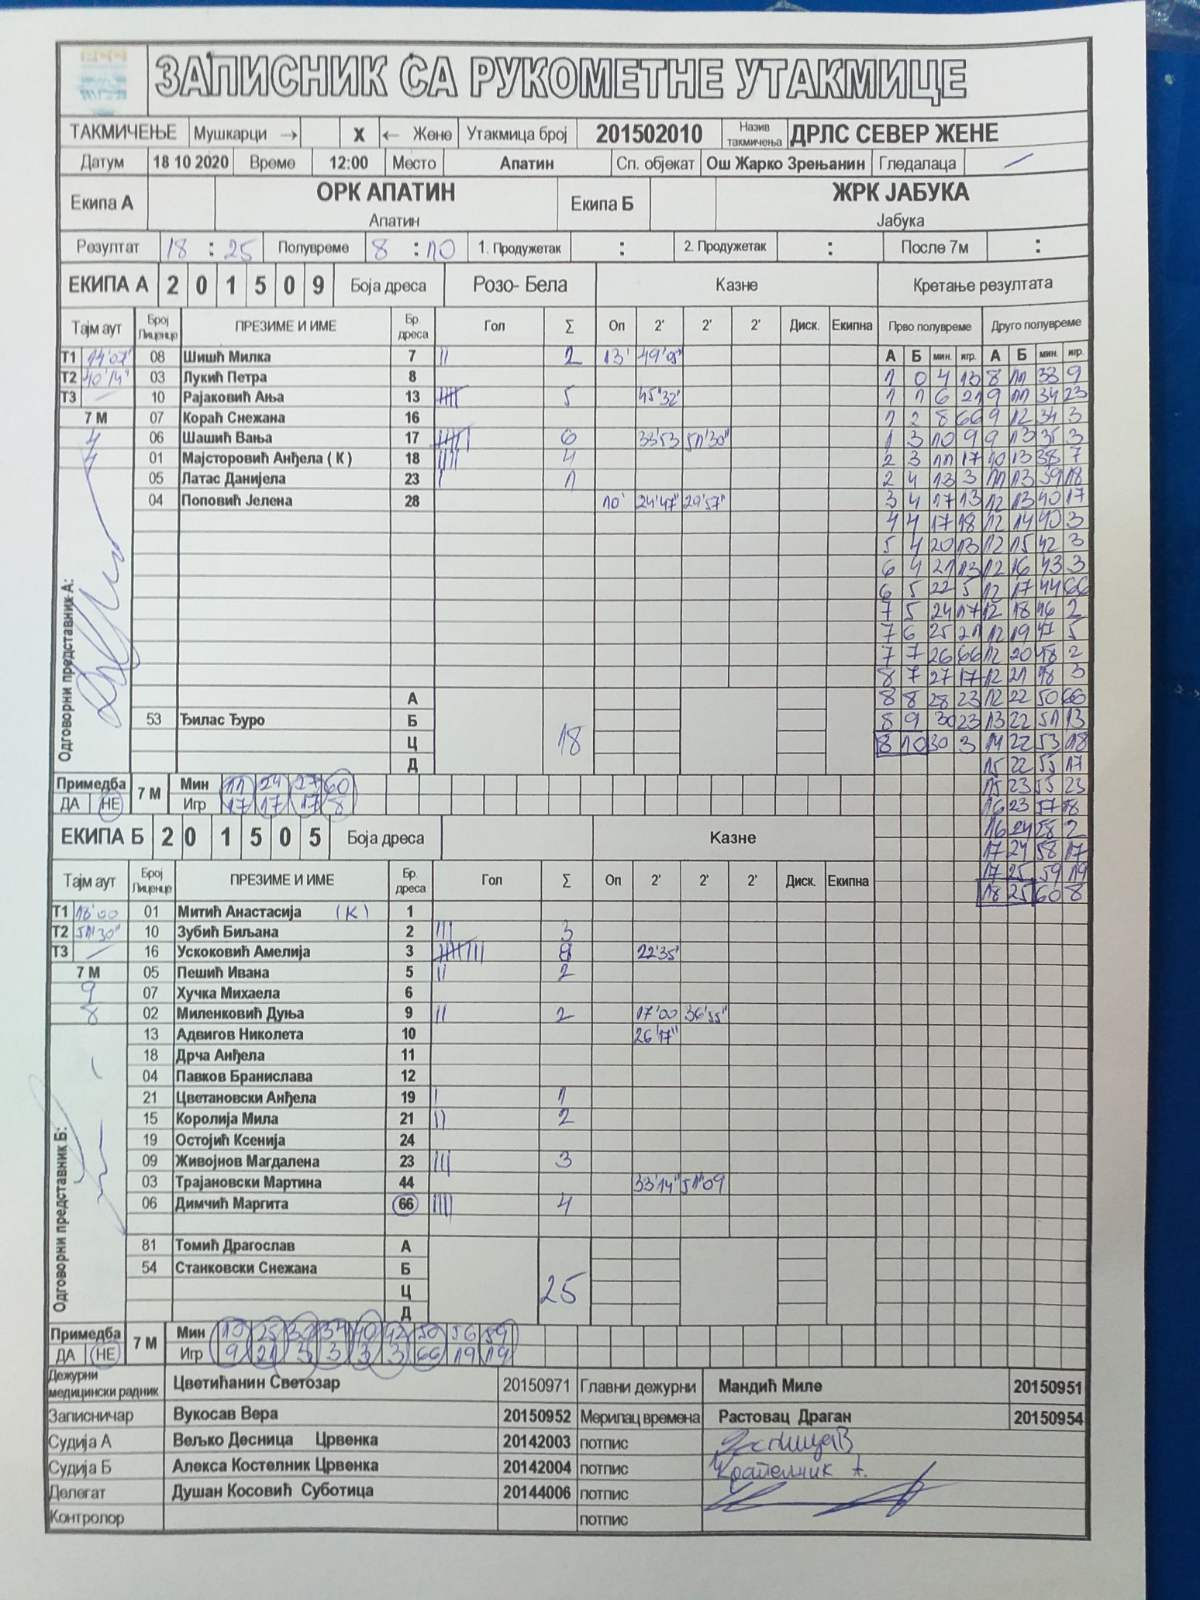 ЗАПИСНИК СА РУКОМЕТНЕ УТАКМИЦЕ
ТАКМИЧЕЊЕ Мушкарци → X ← Жене Утакмица број 201502010 Назив такмичења ДРЛС СЕВЕР ЖЕНЕ
Датум 18 10 2020 Време 12:00 Место Апатин Сп. објекат Ош Жарко Зрењанин Гледалаца /
Екипа А ОРК АПАТИН Екипа Б ЖРК ЈАБУКА
Апатин Јабука
Резултат 18 : 25 Полувреме 8 : 10 1. Продужетак : 2. Продужетак : После 7м :
ЕКИПА А 2 0 1 5 0 9 Боја дреса Розо- Бела Казне Кретање резултата
Тајм аут Број Лиценце ПРЕЗИМЕ И ИМЕ Бр. дреса Гол Σ Оп 2' 2' 2' Диск. Екипна Прво полувреме Друго полувреме
Т1 08 Шишћ Милка 7 || 2 13' А Б мин. игр. А Б мин. игр.
Т2 03 Лукић Петра 8 1 0 4 13 8 11 33 9
Т3 10 Рајаковић Ања 13 5 45'32" 1 1 6 21 9 11 34 23
7 М 07 Кораћ Снежана 16 1 2 8 66 9 12 34 3
4 06 Шашић Вања 17 6 33'53 51'30" 1 3 10 9 9 13 35 3
4 01 Мајсторовић Анђела ( К ) 18 |||| 4 2 3 11 17 10 13 38 7
05 Латас Данијела 23 | 1 2 4 13 3 11 13 39 18
04 Поповић Јелена 28 10' 24'47" 29'57" 3 4 17 13 12 13 40 17
4 4 17 18 12 14 40 3
5 4 20 13 12 15 42 3
6 4 21 13 12 16 43 3
6 5 22 5 12 17 44 66
7 5 24 17 12 18 46 2
7 6 25 21 12 19 47 5
7 7 26 66 12 20 48 2
8 7 27 17 12 21 48 3
А 8 8 28 23 12 22 50 66
53 Ђилас Ђуро Б 8 9 30 23 13 22 51 13
Ц 18 8 10 30 3 14 22 53 18
Д 15 22 55 17
Одговорни представник А:
Примедба 7 М Мин 11 24 27 60 15 23 55 23
ДА НЕ Игр 17 17 17 8 16 23 57 18
ЕКИПА Б 2 0 1 5 0 5 Боја дреса Казне 16 24 58 2
17 24 58 17
Тајм аут Број Лиценце ПРЕЗИМЕ И ИМЕ Бр. дреса Гол Σ Оп 2' 2' 2' Диск. Екипна 17 25 59 19
18 25 60 8
Т1 18'00 01 Митић Анастасија (К) 1
Т2 51'30" 10 Зубић Биљана 2 ||| 3
Т3 16 Ускоковић Амелија 3 8 22'35"
7 М 05 Пешић Ивана 5 || 2
9 07 Хучка Михаела 6
8 02 Миленковић Дуња 9 || 2 17'00 36'55"
13 Адвигов Николета 10 26'17"
18 Дрча Анђела 11
04 Павков Бранислава 12
21 Цветановски Анђела 19 | 1
15 Королија Мила 21 || 2
19 Остојић Ксенија 24
09 Живојнов Магдалена 23 ||| 3
03 Трајановски Мартина 44 33'14" 51'09
06 Димчић Маргита 66 |||| 4
81 Томић Драгослав А
54 Станковски Снежана Б
Ц 25
Д
Одговорни представник Б:
Примедба 7 М Мин 25 40 42 50 56 59
ДА НЕ Игр 9 21 3 3 3 3 66 19 19
Дежурни медицински радник Цветићанин Светозар 20150971 Главни дежурни Мандић Миле 20150951
Записничар Вукосав Вера 20150952 Мерилац времена Растовац Драган 20150954
Судија А Вељко Десница Црвенка 20142003 потпис
Судија Б Алекса Костелник Црвенка 20142004 потпис
Делегат Душан Косовић Суботица 20144006 потпис
Контролор потпис